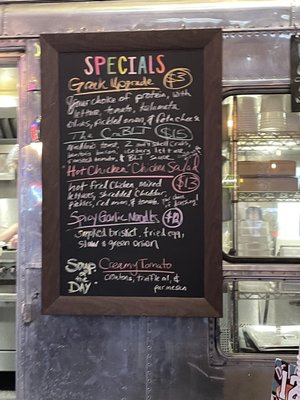 SPECIALS
Greek Upgrade $3
Your choice of protein, with
lettuce, tomato, kalamata
olives, pickled onion, & feta cheese
The CraBLT $15
toast, 2 soft shell crabs,
bacon, iceberg lettuce,
tomato, & BLT sauce
Hot Chicken Chicken Salad
hot fried Chicken mixed $13
lettuces, shredded Cheddar,
Pickles, red onion, & tomato
Spicy Garlic Noodls $12
smoked brisket, fried egg,
slaw & green onion
SOUP of the DAY
Creamy Tomato
croutons, truffle oil, &
parmesan